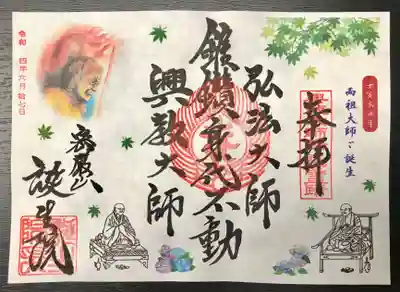 両祖大師ご誕生
奉拝
弘法大師
錐鑽身代不動
興教大師
密厳山
誕生院
令和 四年六月拾七日